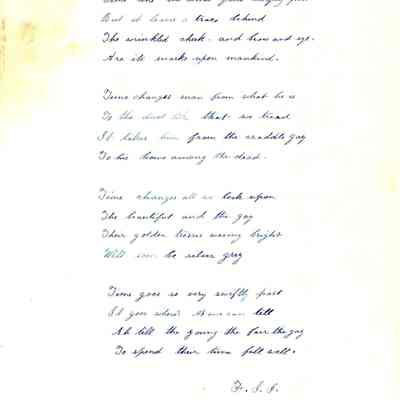 But it leaves a trace behind
The wrinkled cheek and brow and eye.
Are its marks upon mankind.
Time changes man from what he is
To the dust that we tread
It takes him from the gay
To his home among the dead.
Time changes all we look upon
The beautiful and the gay
Their golden tresses waving bright
Will soon be silver grey
Time goes so very swiftly past
It goes where none can tell
Ah tell the young the fair the gay
To spend their time full well.
F. J. J.